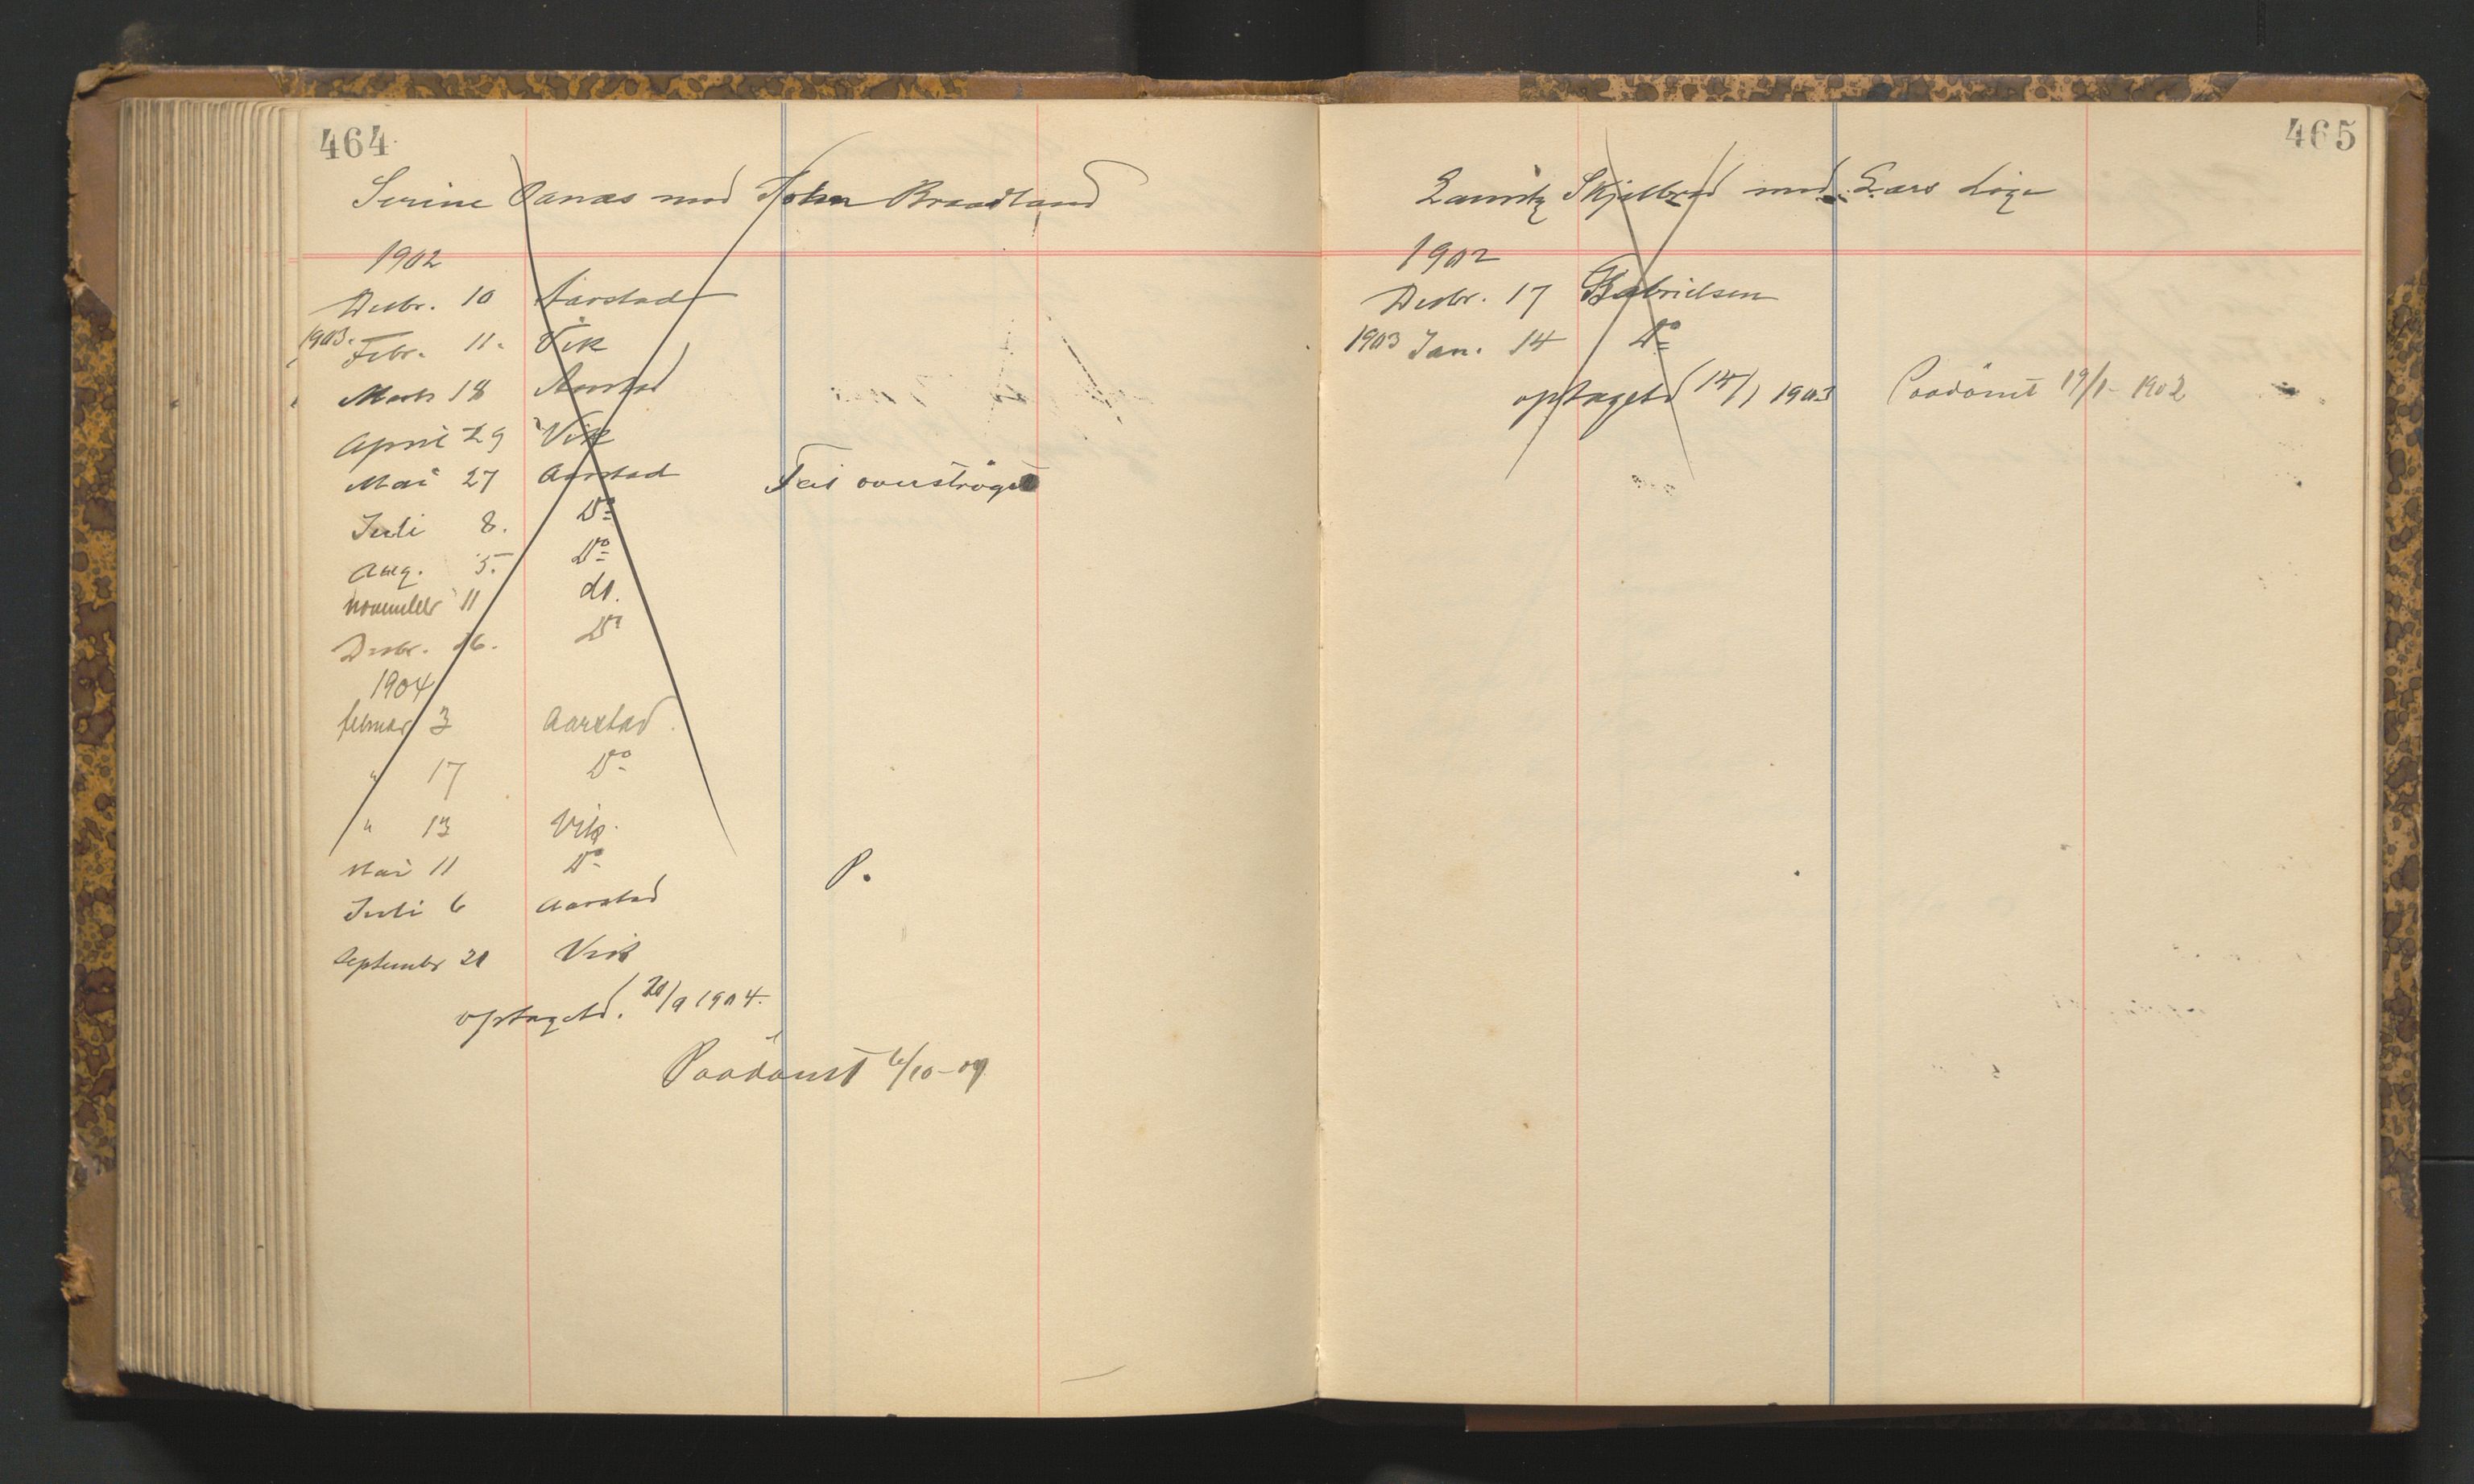 464
Serine Aanæs mod John Braadland
1902
Desbr. 10 Aarstad
1903. Febr. 11. Vik
Marts 18 Aarstad
April 29 Vik
Mai 27 Aarstad Feil overstrøget
Juli 8. Do
Aug. 5. Do
november 11 do.
Desbr. 16. Do
1904
februar 3 Aarstad.
" 17 Do
" 13 Vik.
Mai 11 Do P.
Juli 6 Aarstad
September 21 Vik
optaget d. /9 1904.
Paadömt 6/10-04
465
Lauritz Skjelbred mod Lars Löge
1902
Desbr. 17 Gabrielsen
1903 Jan. 14 Do
optaget d 14/1 1903 Paadömt 19/1-1902